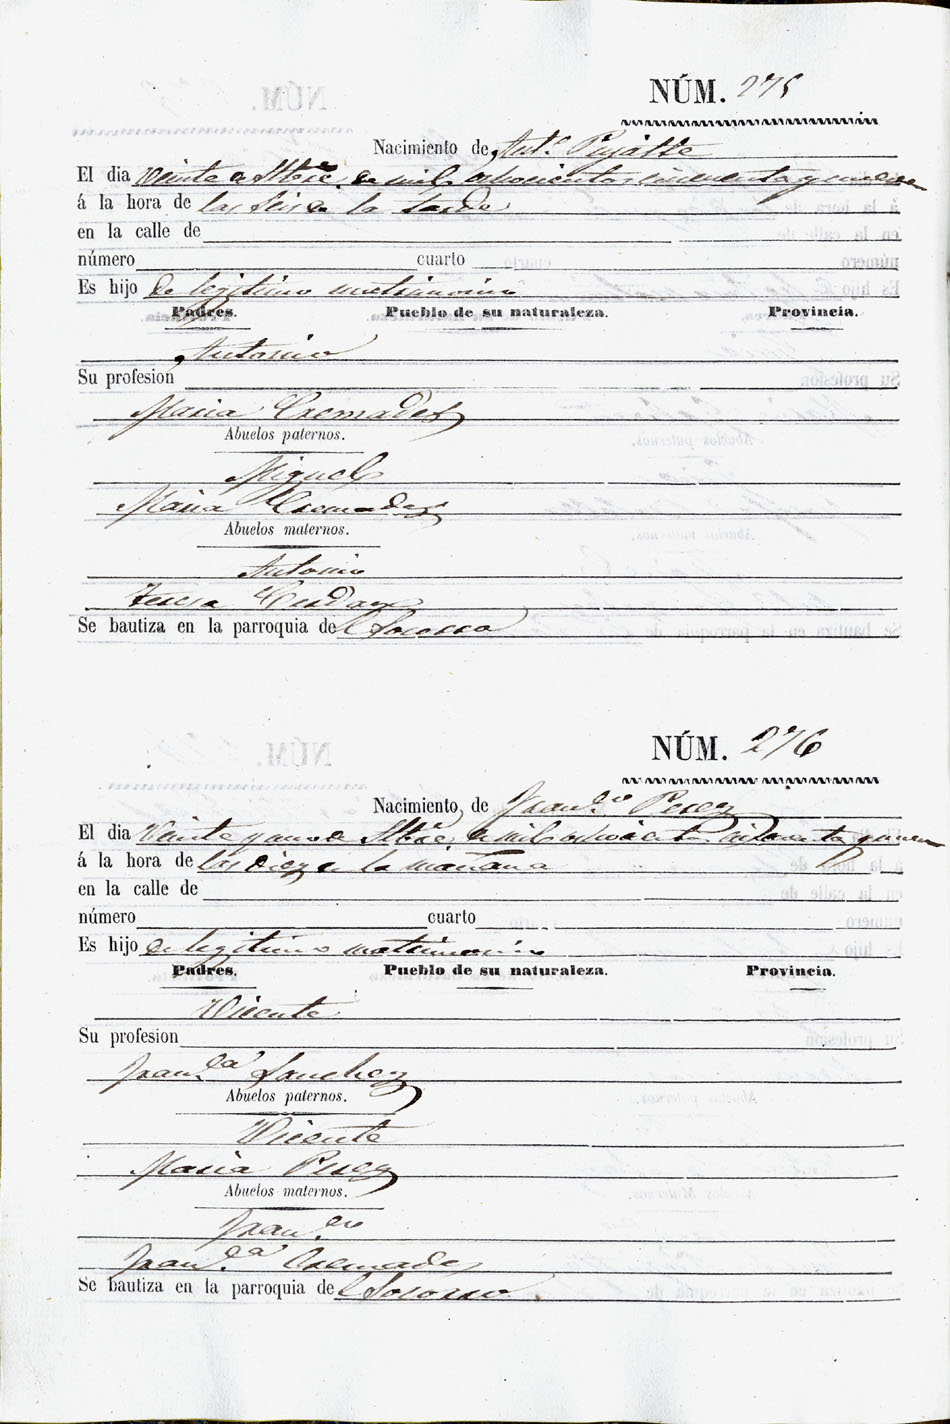 NÚM. 275
Nacimiento de Ant.º Pujalte
El dia Veinte de Stbre. de mil ochocientos cincuenta y
á la hora de las seis de la tarde
en la calle de
número cuarto
Es hijo de legitimo matrimonio
Padres. Pueblo de su naturaleza. Provincia.
Antonio
Su profesion
Maria Cremades
Abuelos paternos.
Miguel
Maria Cremades
Abuelos maternos.
Antonio
Teresa Cerdan
Se bautiza en la parroquia de Socorro
NÚM. 276
Nacimiento de Fran.co Perez
El dia Veinte y uno de Stbre de mil ochocient
á la hora de las diez de la mañana
en la calle de
número cuarto
Es hijo de legitimo matrimonio
Padres. Pueblo de su naturaleza. Provincia.
Vicente
Su profesion
Fran.ca Sanchez
Abuelos paternos.
Vicente
Maria Perez
Abuelos maternos.
Fran.co
Fran.ca Cremades
Se bautiza en la parroquia de Socorro.